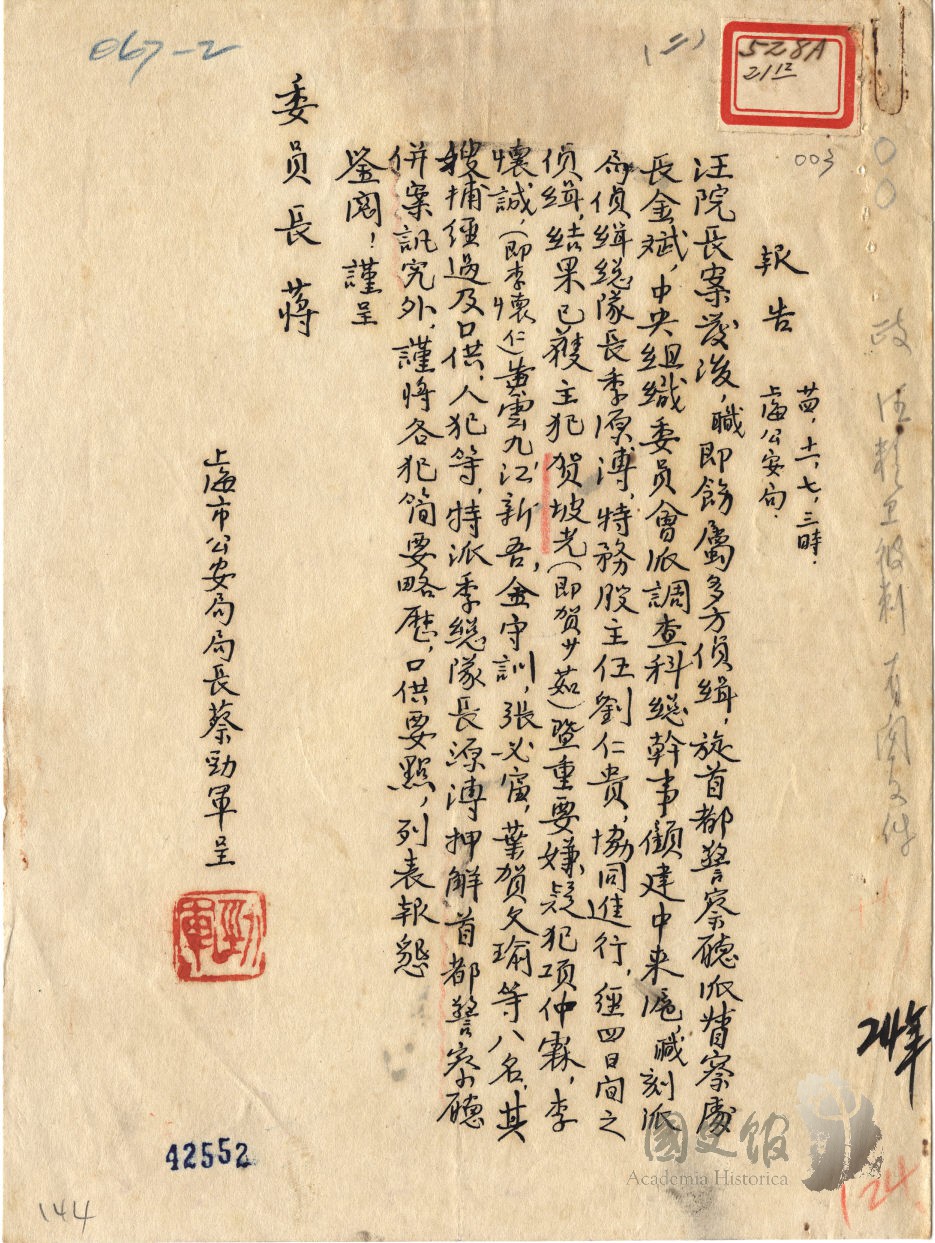 067-2
(二)
528A
21 12
003
00 政 汪精卫被刺 有関文件
報告
廿四、十一、七、三時.
上海公安局.
汪院長案發後，職即飭屬多方偵緝，旋首都警察廳派督察處
長金斌，中央組織委員會派調查科總幹事顧建中来滬，職刻派
局偵緝總隊長季源溥，特務股主任劉仁貴，協同進行，經四日間之
偵緝，結果已獲主犯賀坡光（即賀少茹）暨重要嫌疑犯項仲霖，李
懷誠，（即李懷仁）黃雲九，江新吾，金守訓，張必富，葉賀文瑜等八名，其
搜捕經過及口供，人犯等，特派季總隊長源溥押解首都警察廳
併案訊究外，謹將各犯簡要略歷，口供要點，列表報懇
鉴閱！謹呈
委員長 蔣
上海市公安局局長蔡勁軍呈
勁軍
24年
國史館
Academia Historica
124
42552
144